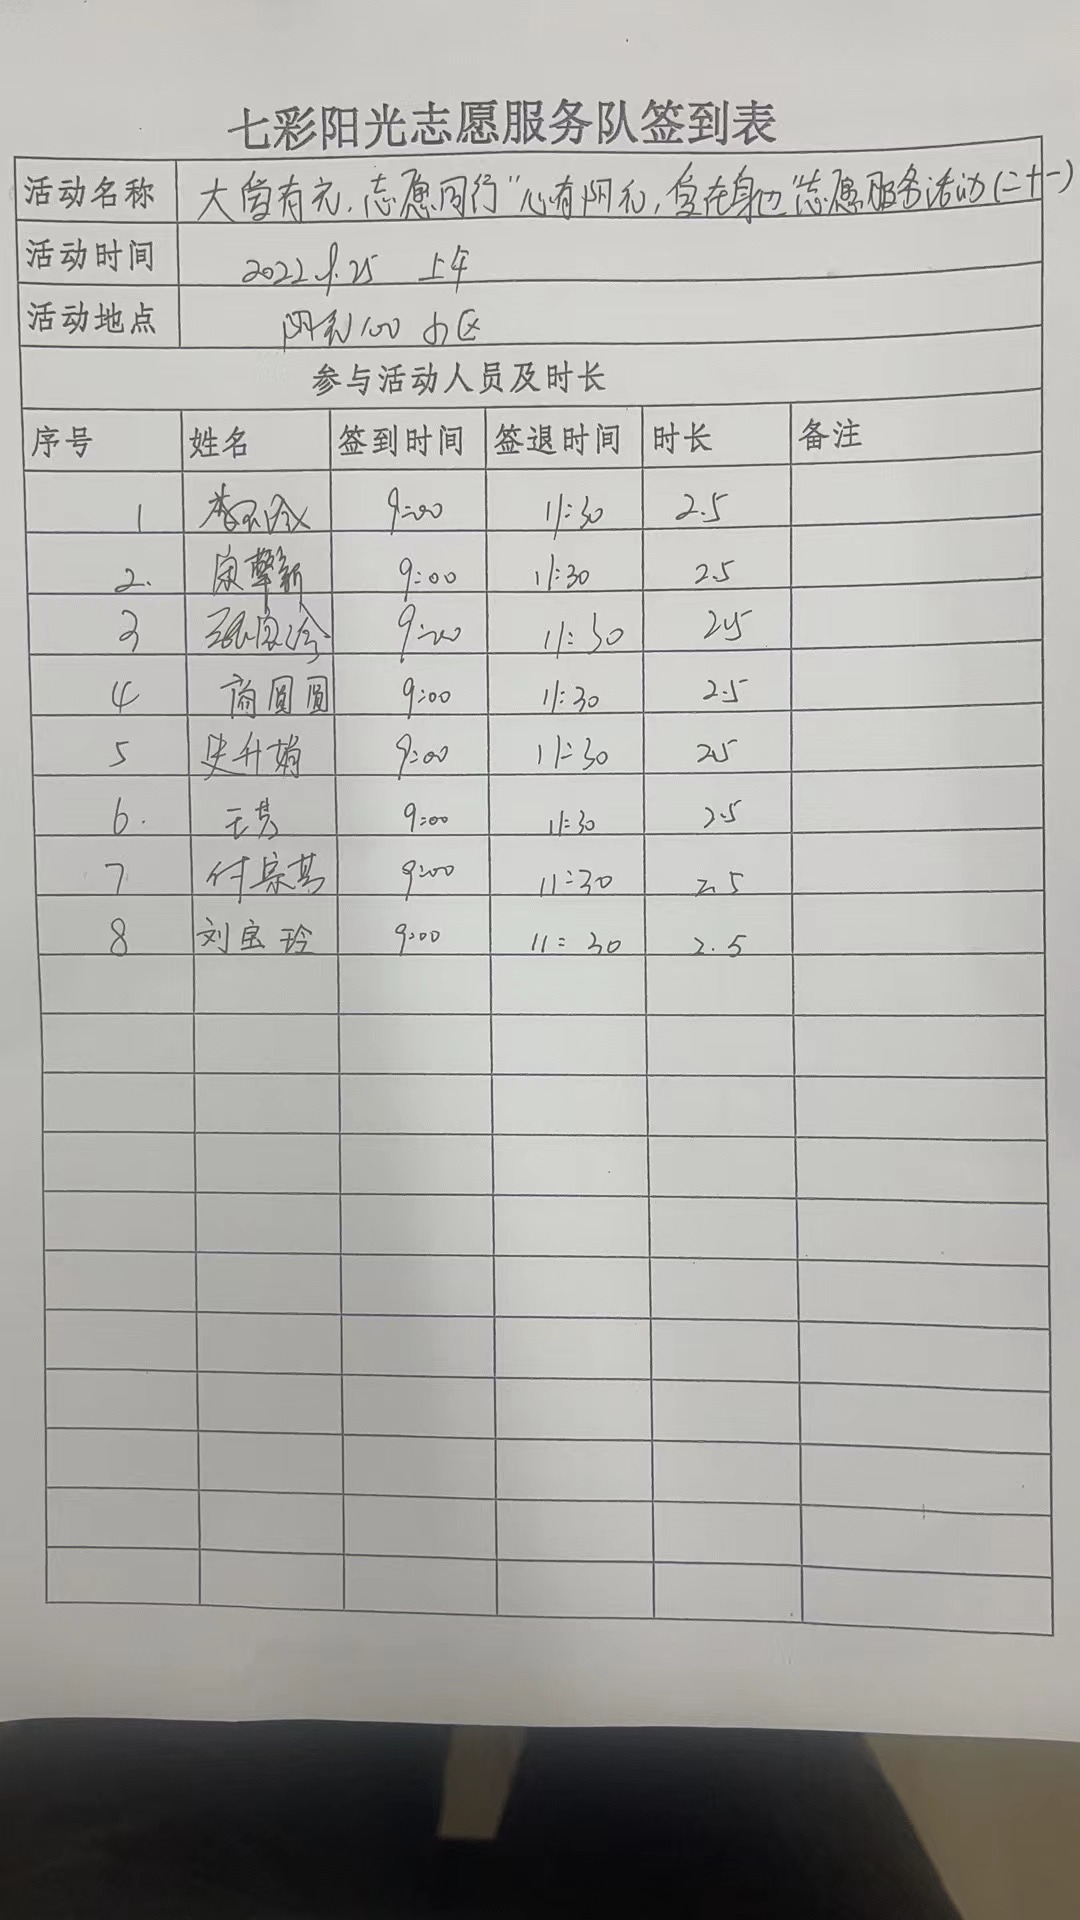 七彩阳光志愿服务队签到表
活动名称 大爱有光,志愿同行"心有阳光,爱在身边"志愿服务活动(二十一)
活动时间 2022.9.25 上午
活动地点 阳光100小区
参与活动人员及时长
序号 姓名 签到时间 签退时间 时长 备注
1 9:00 11:30 2.5
2. 9:00 11:30 2.5
3 9:00 11:30 2.5
4 商圆圆 9:00 11:30 2.5
5 史升娟 9:00 11:30 2.5
6. 9:00 11:30 2.5
7 付宗英 9:00 11:30 2.5
8 刘宝玲 9:00 11:30 2.5